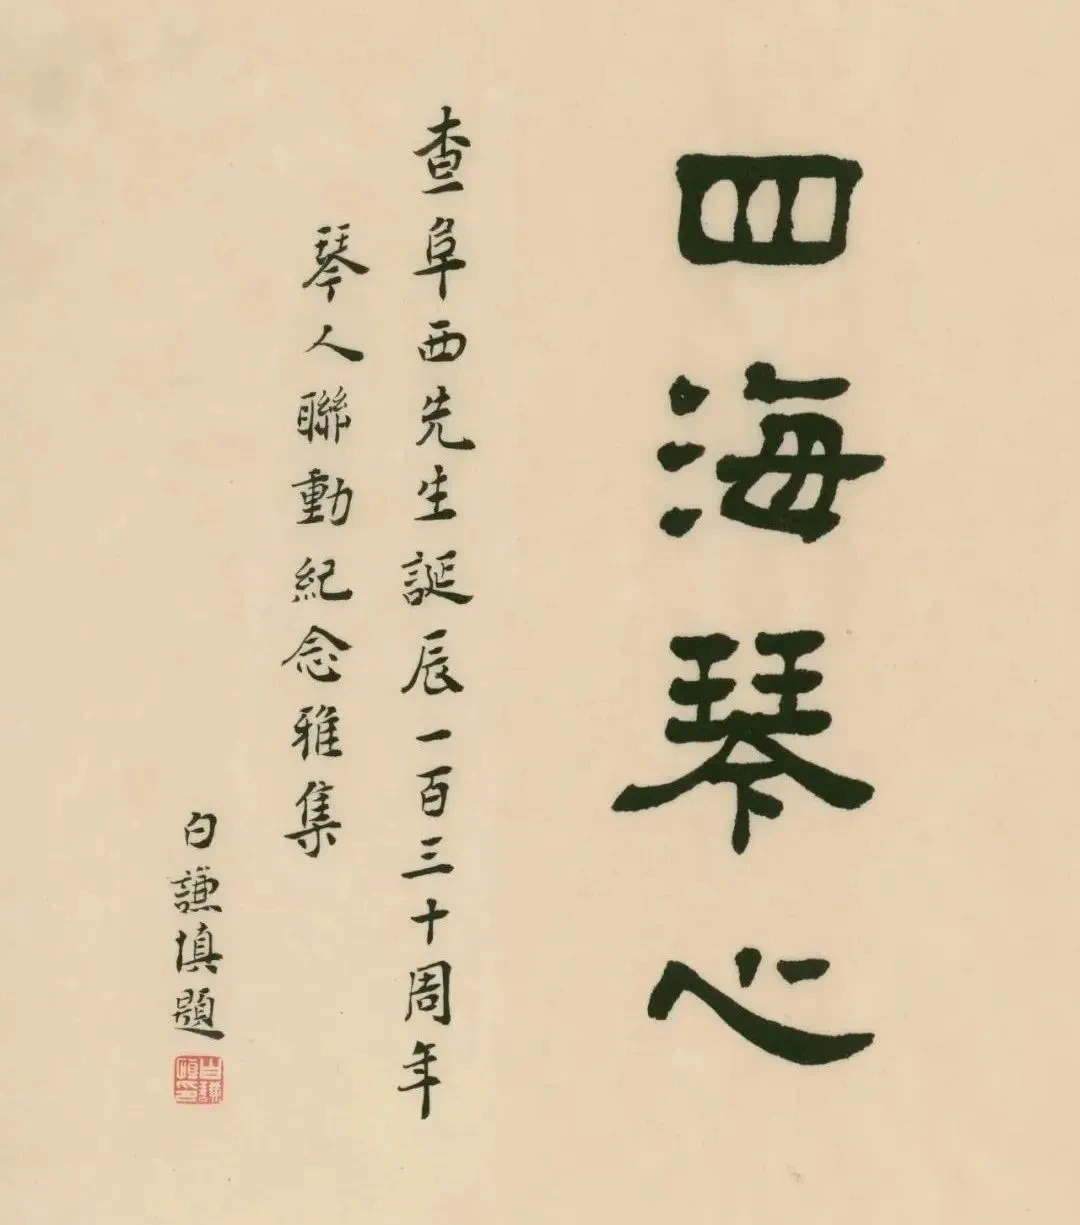 四海琴心
查阜西先生誕辰一百三十周年
琴人聯動紀念雅集
白謙慎題
白謙慎印